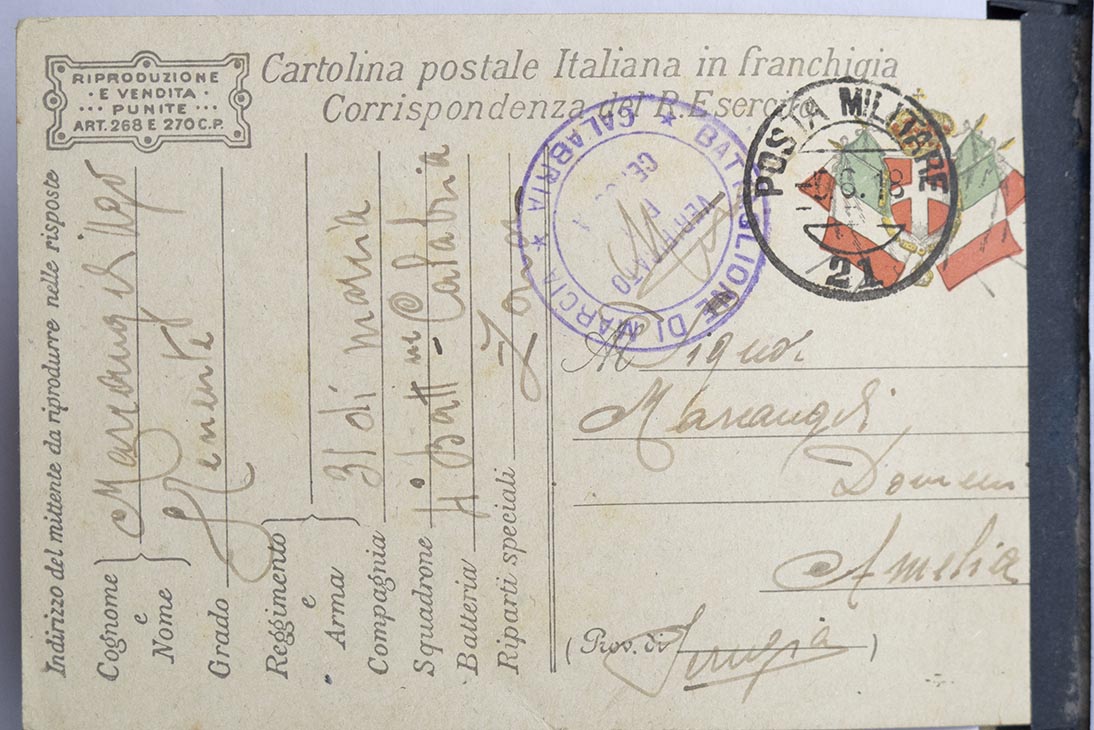 RIPRODUZIONE
· E VENDITA ·
··· PUNITE ···
ART. 268 E 270 C.P.
Cartolina postale Italiana in franchigia
Corrispondenza del R. Esercito
POSTA MILITARE
6.18
21
★ BATTAGLIONE DI MARCIA ★ CALABRIA
VERIFICATO
Indirizzo del mittente da riprodurre nelle risposte
Cognome e Nome
Ugo
Grado
Reggimento e Arma
31 di marcia
Compagnia
Squadrone
4° Batt.ne Calabria
Batteria
Riparti speciali
Zona
M Signor
Marcangeli
Domeni
Amelia
(Prov. di Perugia)